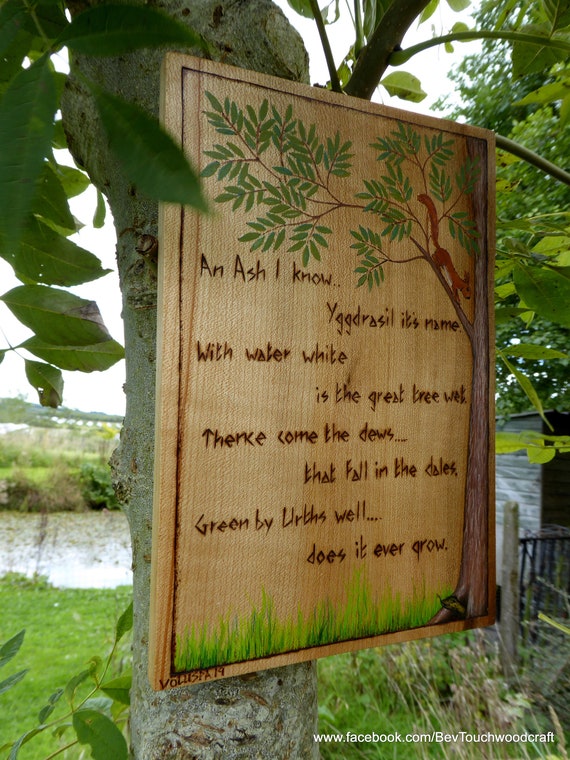 An Ash I know..
Yggdrasil it's name
With water white
is the great tree wet.
Thence come the dews....
that fall in the dales.
Green by Urths well....
does it ever grow.
VOLUSPA 19
www.facebook.com/BevTouchwoodcraft